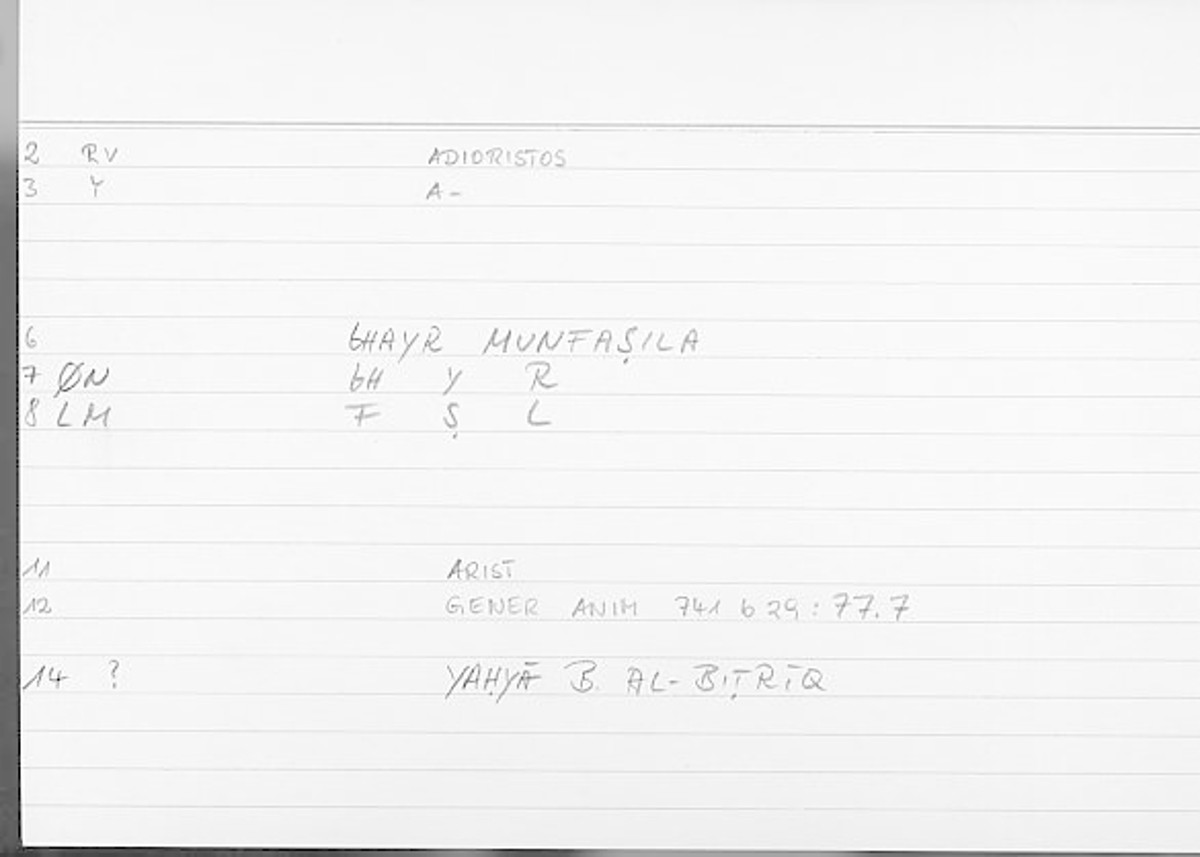 2 RV ADIORISTOS
3 Y A-
6 GHAYR MUNFAṢILA
7 ØN GH Y R
8 LM F Ṣ L
11 ARIST
12 GENER ANIM 741 b 29: 77.7
14 ? YAḤYĀ B. AL-BIṬRĪQ